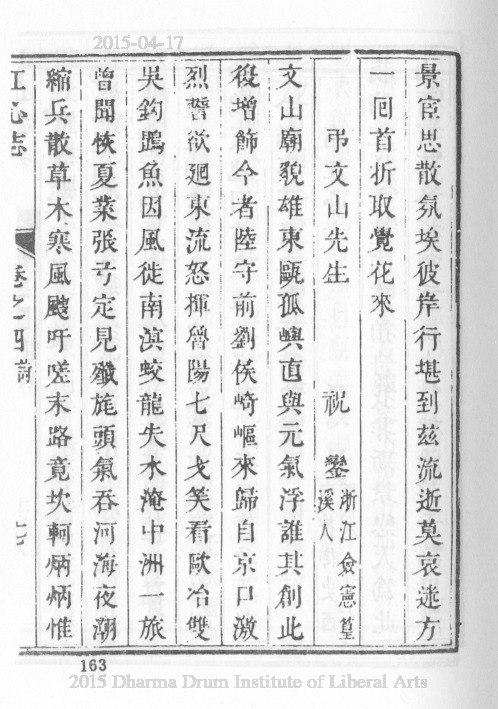 2015-04-17
景宦思散氛埃彼岸行堪到茲流逝莫哀迷方
一囘首折取覺花來
弔文山先生 祝鑾 浙江僉憲篁溪人
文山廟貌雄東甌孤嶼直與元氣浮誰其創此
後增飾今者陸守前劉侯崎嶇來歸自京口激
烈誓欲廻東流怒揮魯陽七尺戈笑看歐冶雙
吳鈎鵾魚因風徙南溟蛟龍失水淹中洲一旅
曾聞恢夏業張弓定見殲旄頭氣吞河海夜潮
縮兵散草木寒風颼吁嗟末路竟坎軻炳炳惟
江心志 卷之四 詩
163
2015 Dharma Drum Institute of Liberal Arts